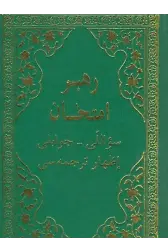 رهبر
امتحان
سؤاللی - جوابلی
اظهار ترجمه‌سی